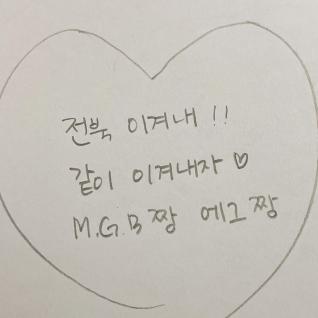 전북 이겨내 !!
같이 이겨내자 ♡
M.G.B 짱 에그 짱